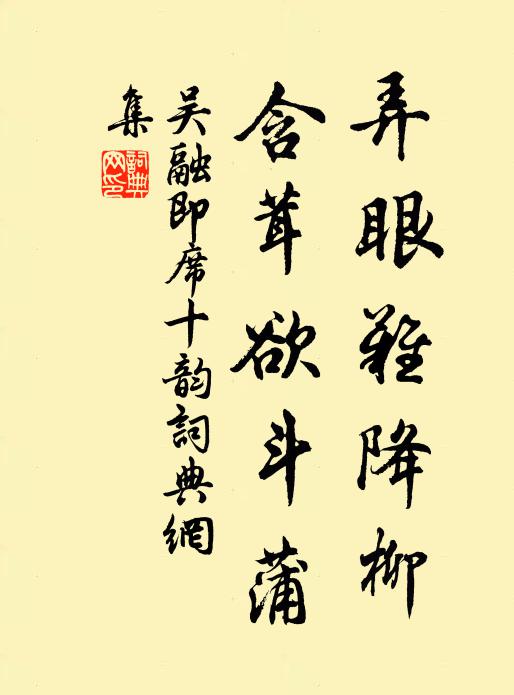 弄眼难降柳
含茸欲斗蒲
吴融即席十韵詞典網
集
詞典
网印